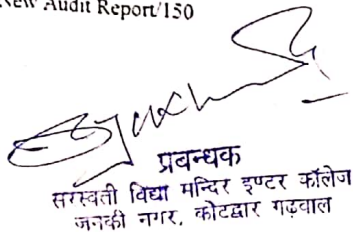 New Audit Report/150
प्रबन्धक
सरस्वती विद्या मन्दिर इण्टर कॉलेज
जनकी नगर, कोटद्वार गढ़वाल